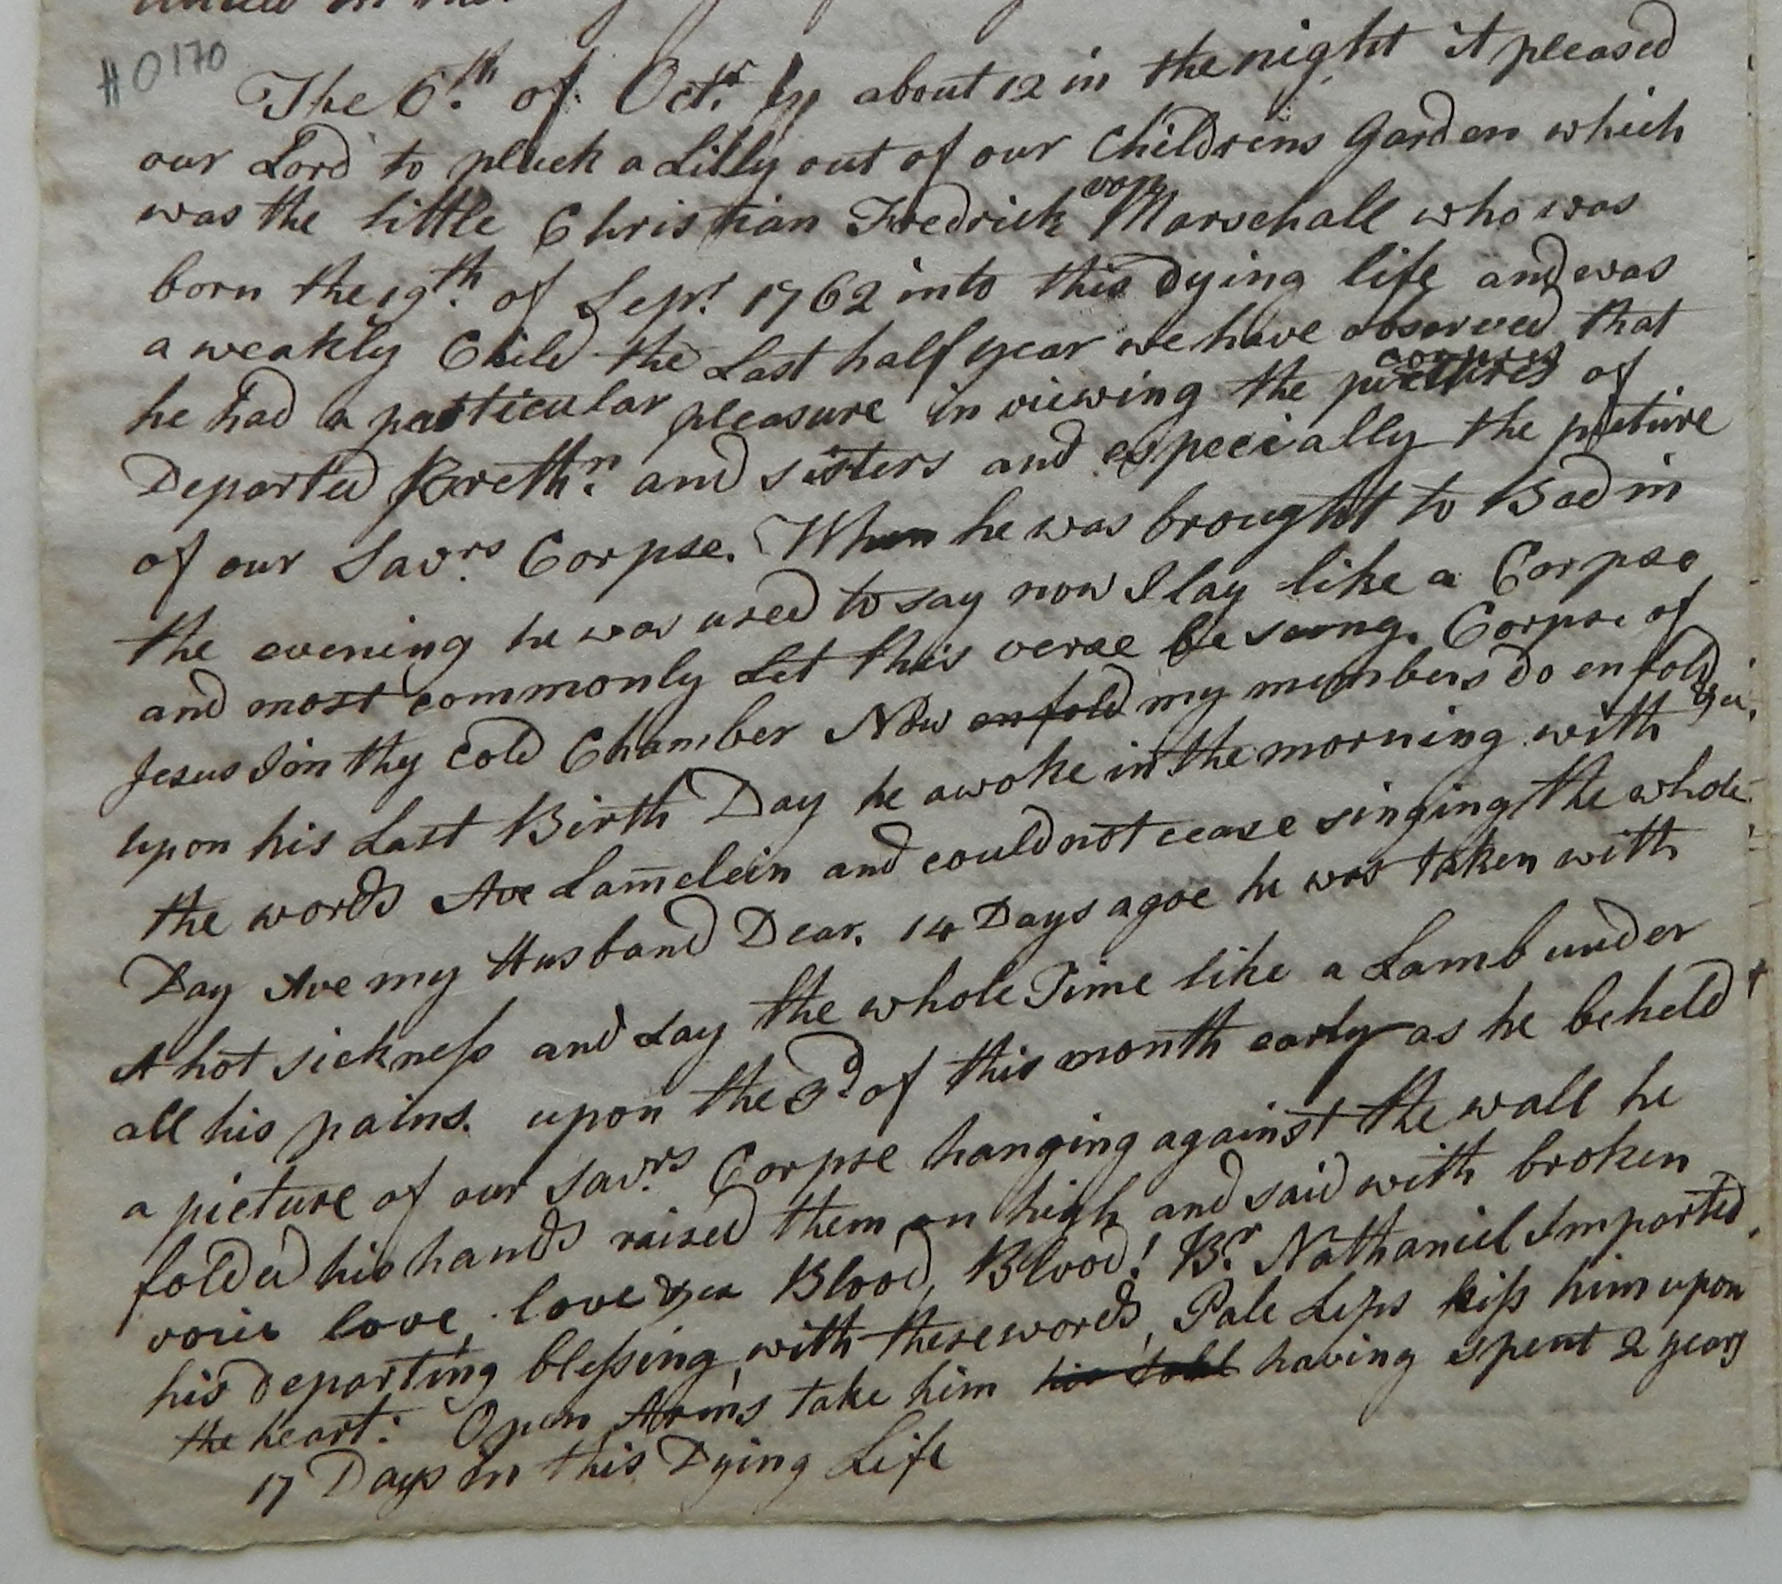 H0170
The 6th. of Octr. about 12 in the night it pleased
our Lord to pluck a Lilly out of our Childrens Garden which
was the little Christian Fredrick von Marschall who was
born the 19th. of Sept. 1762 into this dying life and was
a weakly Child the Last half year we have observed that
he had a particular pleasure in viewing the corpses of
Departed Brethn. and sisters and especially the picture
of our Savrs. Corpse. When he was brought to Bad in
the evening he was used to say now I lay like a Corpse
and most commonly Let this verse be sung. Corpse of
Jesus I in thy Cold Chamber Now enfold my members do enfold &c.
upon his Last Birth Day he awoke in the morning with
the words Ave Lam̄elein and could not cease singing the whole
Day Ave my Husband Dear. 14 Days agoe he was taken with
A hot sickness and Lay the whole Time like a Lamb under
all his pains. upon the 3d of this month early as he beheld
a picture of our Savrs. Corpse hanging against the wall he
folded his hands raised them on high and said with broken
voice love, love yea Blood, Blood! Br. Nathaniel Imparted
his departing blessing with these words, Pale Lips kiss him upon
the heart: Open Arms take him having spent 2 years
17 Days in this Dying Life